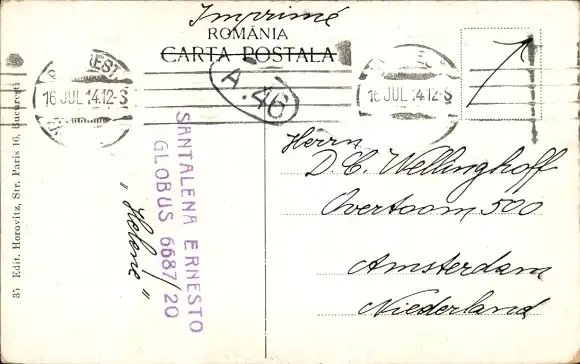 Imprimé
ROMÂNIA
CARTA POSTALA
16 JUL 14.12-S
16 JUL 14.12-S
A.46
SANTALENA ERNESTO
GLOBUS 6687/20
„Helene"
Herrn
D. C. Wellinghoff
Overtoom 500
Amsterdam
Niederland
Edit. Horovitz, Str. Paris 16, Bucaresti